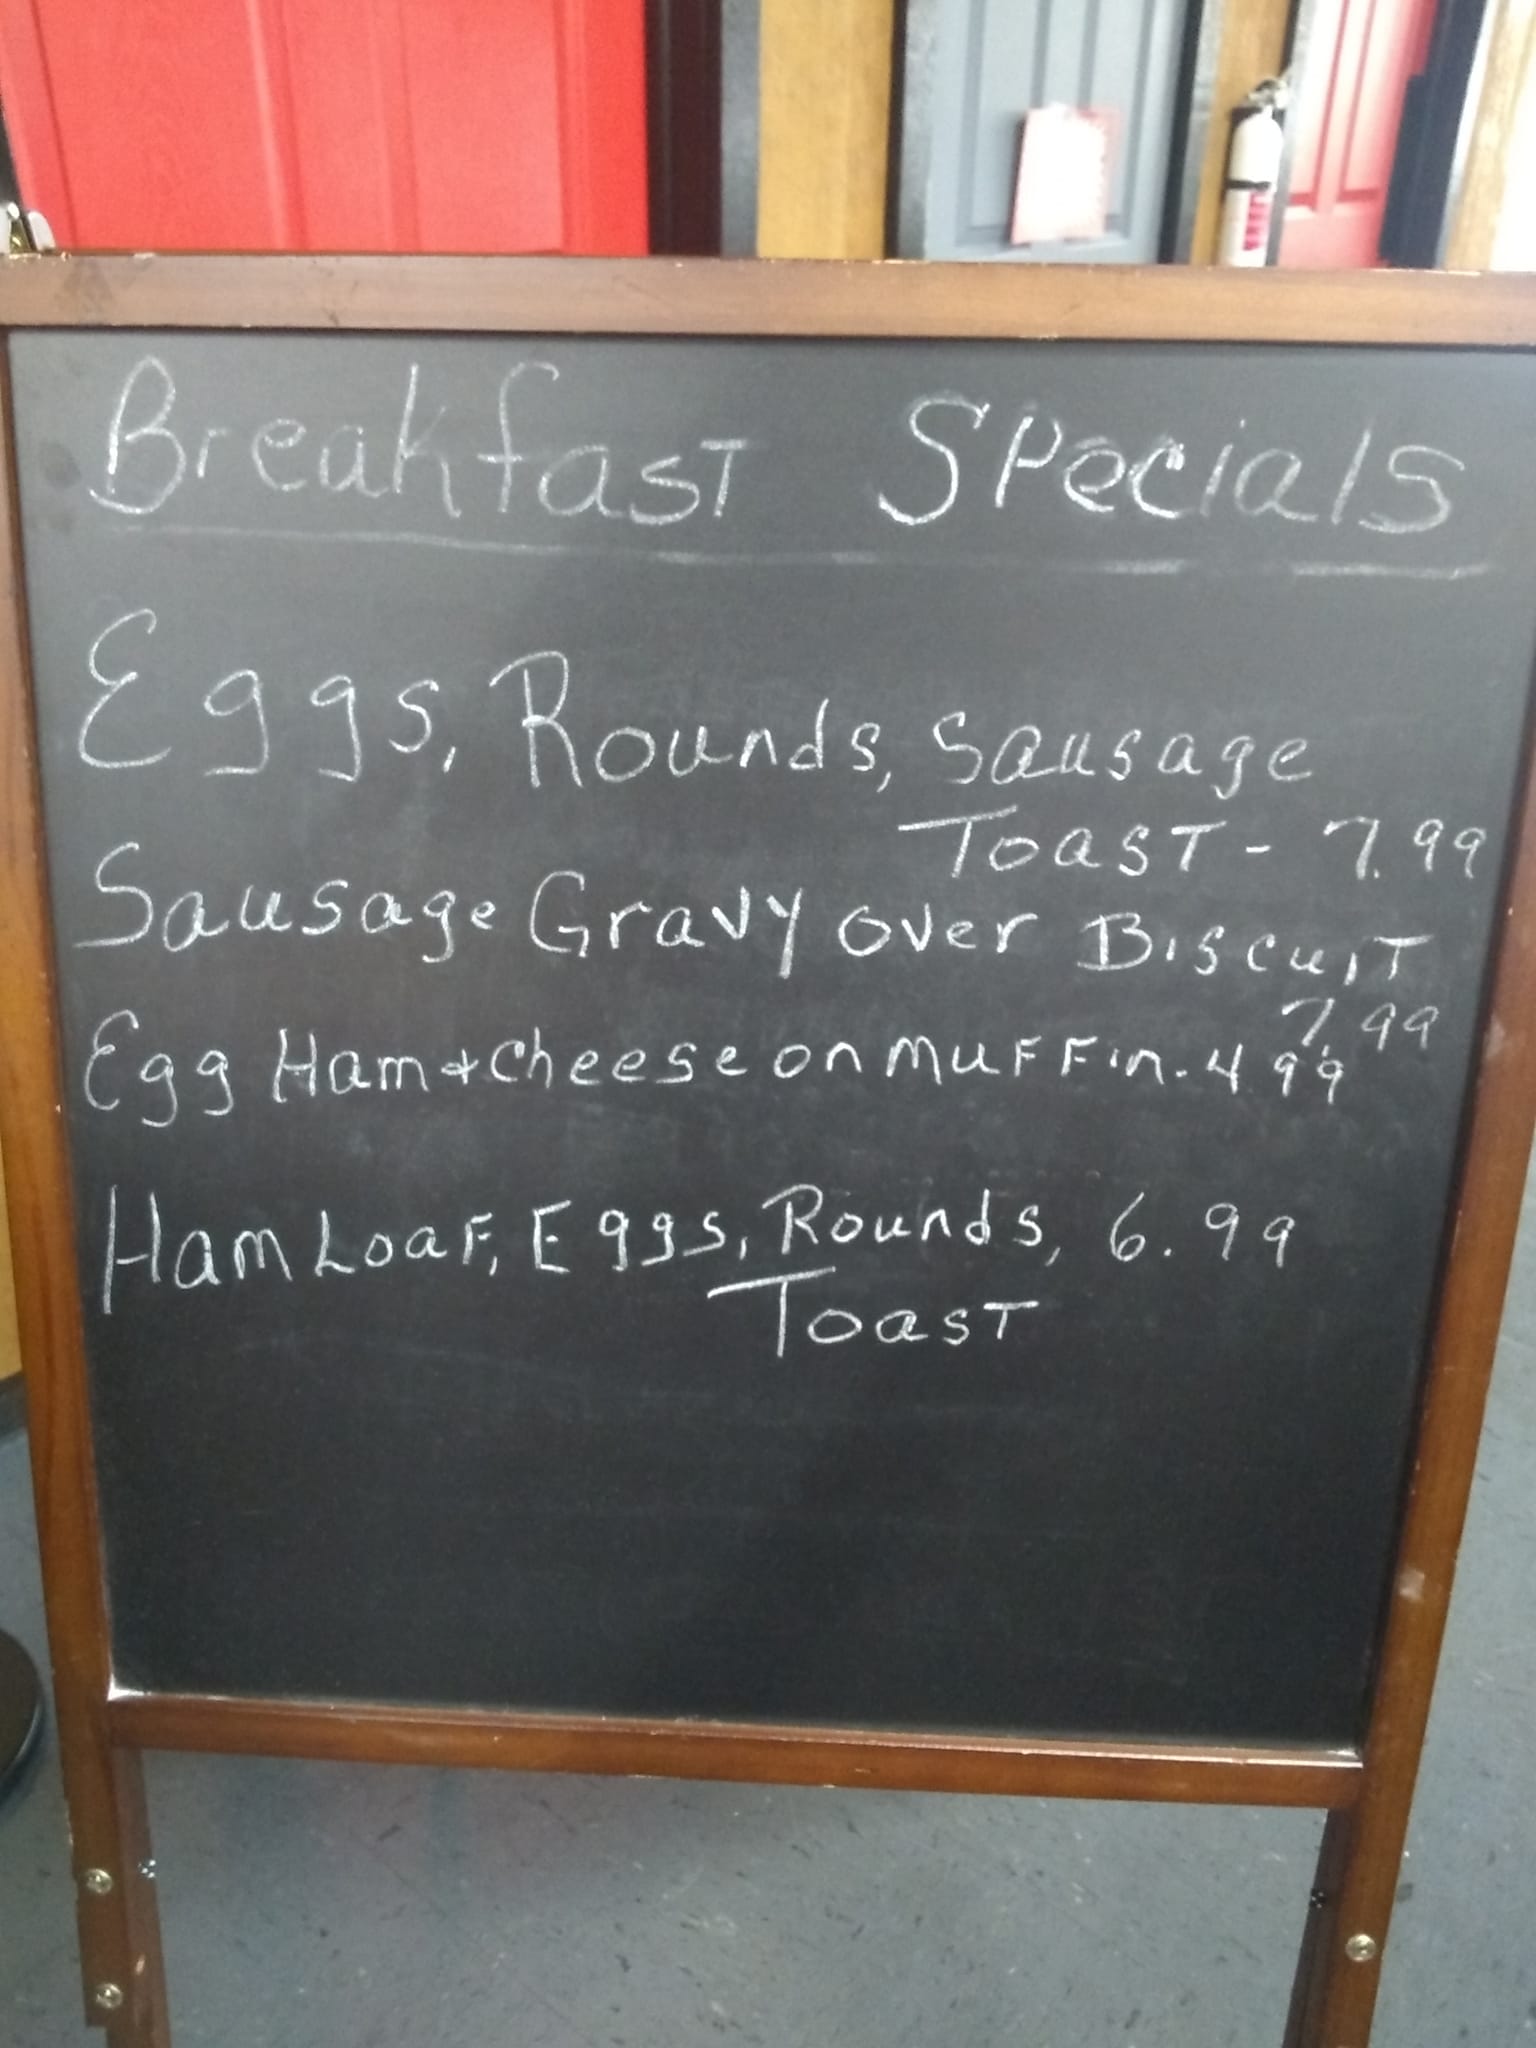 Breakfast Specials
Eggs, Rounds, Sausage
Toast - 7.99
Sausage Gravy over Biscuit
7.99
Egg Ham + Cheese on Muffin - 4.99
Ham Loaf, Eggs, Rounds, 6.99
Toast